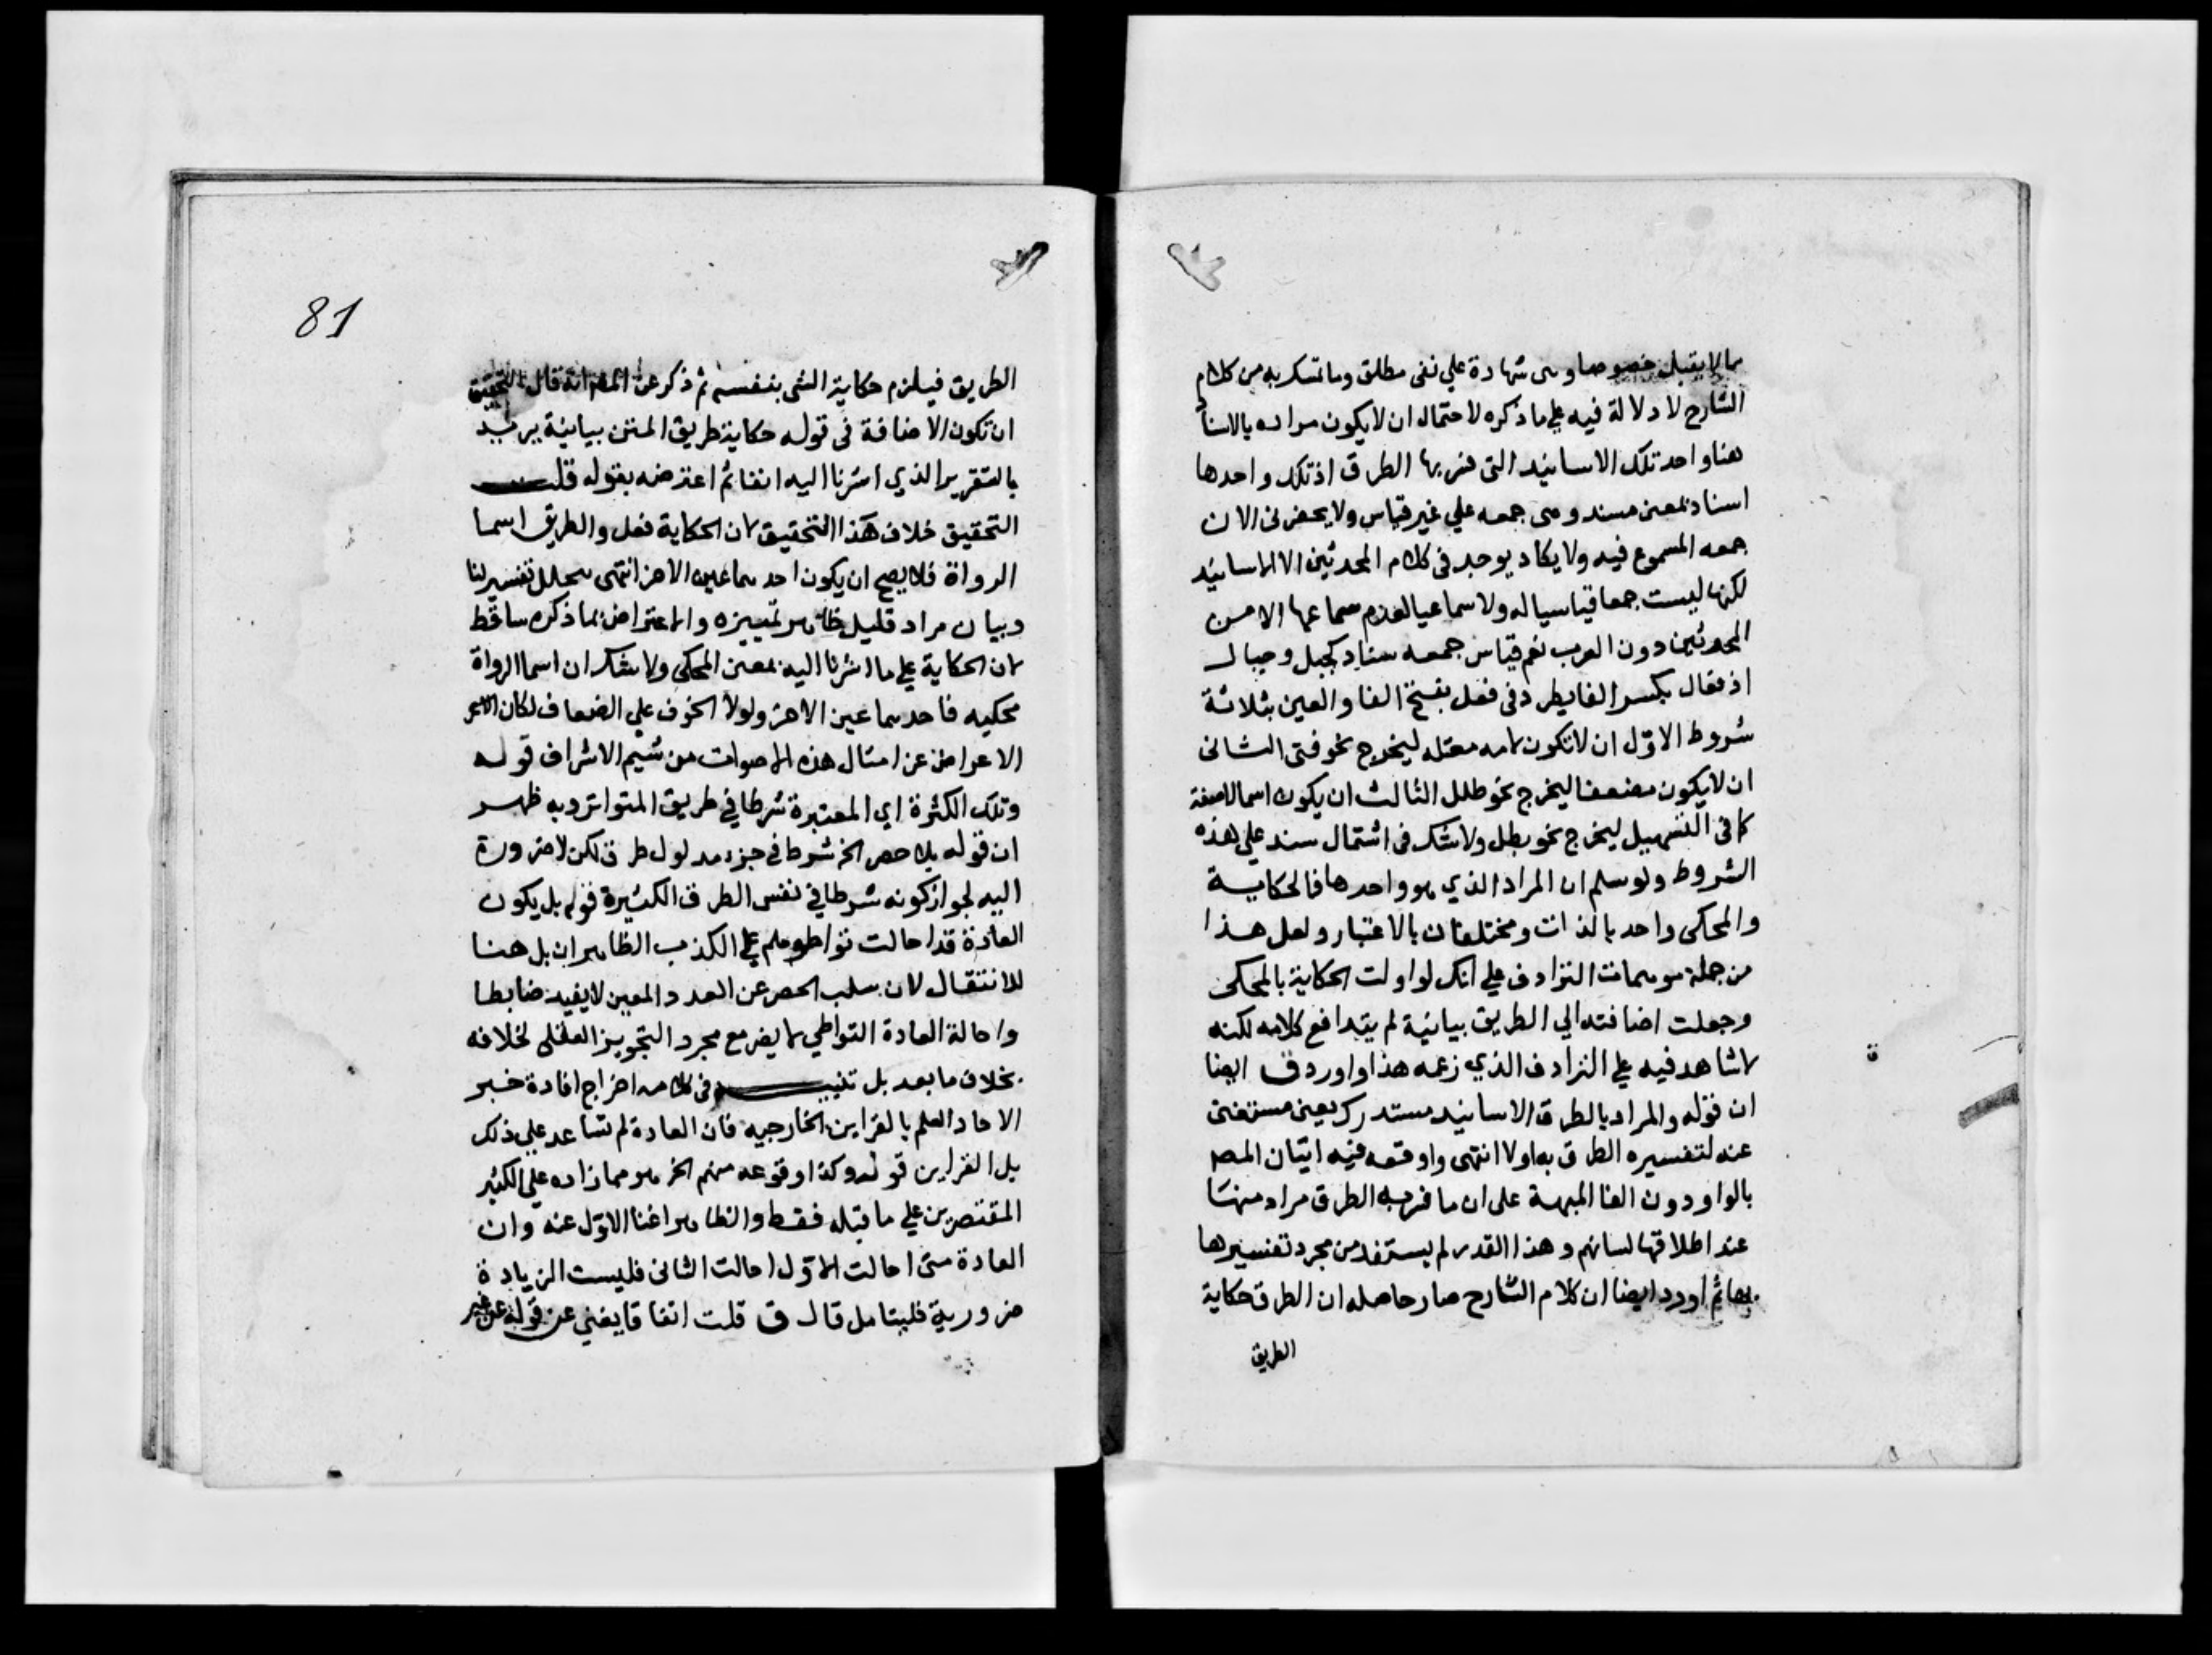 مما لا يقبل خصوصا وهى شهادة علي نفى مطلق وما تمسك به من كلام
الشارح لا دلالة فيه علي ما ذكره لاحتمال ان لا يكون مراده بالاسنا
هنا واحد تلك الاسانيد التى فسر بها الطرق اذ تلك واحدها
اسناد بمعنى مسند وهى جمعه علي غير قياس ولا يحضرنى الان
جمعه المسموع فيه ولا يكاد يوجد فى كلام المحدثين الا الاسانيد
لكنها ليست جمعا قياسيا له ولا سماعيا لعدم سماعها الا من
المحدثين دون العرب نعم قياس جمعه سناد كجبل وجبال
اذ فعال بكسر الفا يطرد فى فعل بفتح الفا والعين بثلاثة
شروط الاوّل ان لا تكون لامه معتله ليخرج نحو فتى الثانى
ان لا يكون مضعفا ليخرج نحو طلل الثالث ان يكون اسما لا صفة
كما فى التسهيل ليخرج نحو بطل ولا شك فى اشتمال سند علي هذه
الشروط ولو سلم ان المراد الذي هو واحدها فالحكاية
والمحكى واحد بالذات ومختلفان بالاعتبار ولعل هذا
من جملة موهمات الترادف علي انك لو اولت الحكاية بالمحكى
وجعلت اضافته الي الطريق بيانية لم يتدافع كلامه لكنه
لا شاهد فيه علي الترادف الذي زعمه هذا واورد ق ايضا
ان قوله والمراد بالطرق الاسانيد مستدرك يعنى مستغنى
عنه لتفسيره الطرق به اولا انتهى واوقعه فيه اتيان المص
بالواو دون الفا المبهة على ان ما فسر به الطرق مراد منها
عند اطلاقها لسانهم وهذا القدر لم يستفد من مجرد تفسيرها
بها ثم اورد ايضا ان كلام الشارح صار حاصله ان الطرق حكاية
الطريق
81
الطريق فيلزم حكاية الشى بنفسه ثم ذكر عن المص انه قال التحقيق
ان تكون الاضافة فى قوله حكاية طريق المتن بيانية يريد
بالتقرير الذي اشرنا اليه انفا ثم اعترضه بقوله قلت
التحقيق خلاف هذا التحقيق لان الحكاية فعل والطريق اسما
الرواة فلا يصح ان يكون احدهما عين الاخر انتهى تفسير لنا
وبيان مراد قليل ظاهر تمييزه والاعتراض بما ذكره ساقط
لان الحكاية علي ما اشرنا اليه بمعنى المحكى ولا شك ان اسما الرواة
محكيه فاحدهما عين الاخر ولولا الخوف علي الضعاف لكان
الاعراض عن امثال هذه الاصوات من شيم الاشراف قوله
وتلك الكثرة اي المعتبرة شرطا في طريق المتواتر وبه ظهر
ان قوله بلا حصر الخ شرط في جزء مدلول طرق لكن لا ضرورة
اليه لجواز كونه شرطا في نفس الطرق الكثيرة قوله بل يكون
العادة قد احالت تواطوهم علي الكذب الظاهر ان بل هنا
للانتقال لان سلب الحصر عن العدد المعين لا يفيد ضابطا
واحالة العادة التواطي لا يضر مع مجرد التجويز العقلى لخلافه
بخلاف ما بعد بل تنبيه فى كلامه اخراج افادة خبر
الاحاد العلم بالقراين الخارجيه فان العادة لم تساعد علي ذلك
بل القراين قوله وكذا وقوعه منهم الخ هو مما زاده علي الكثير
المقتصرين علي ما قبله فقط والظاهر اغنا الاوّل عنه وان
العادة متى احالت الاوّل احالت الثانى فليست الزيادة
ضرورية فليتامل قال ق قلت اتفاقا يغني عن قوله عن غير
ة